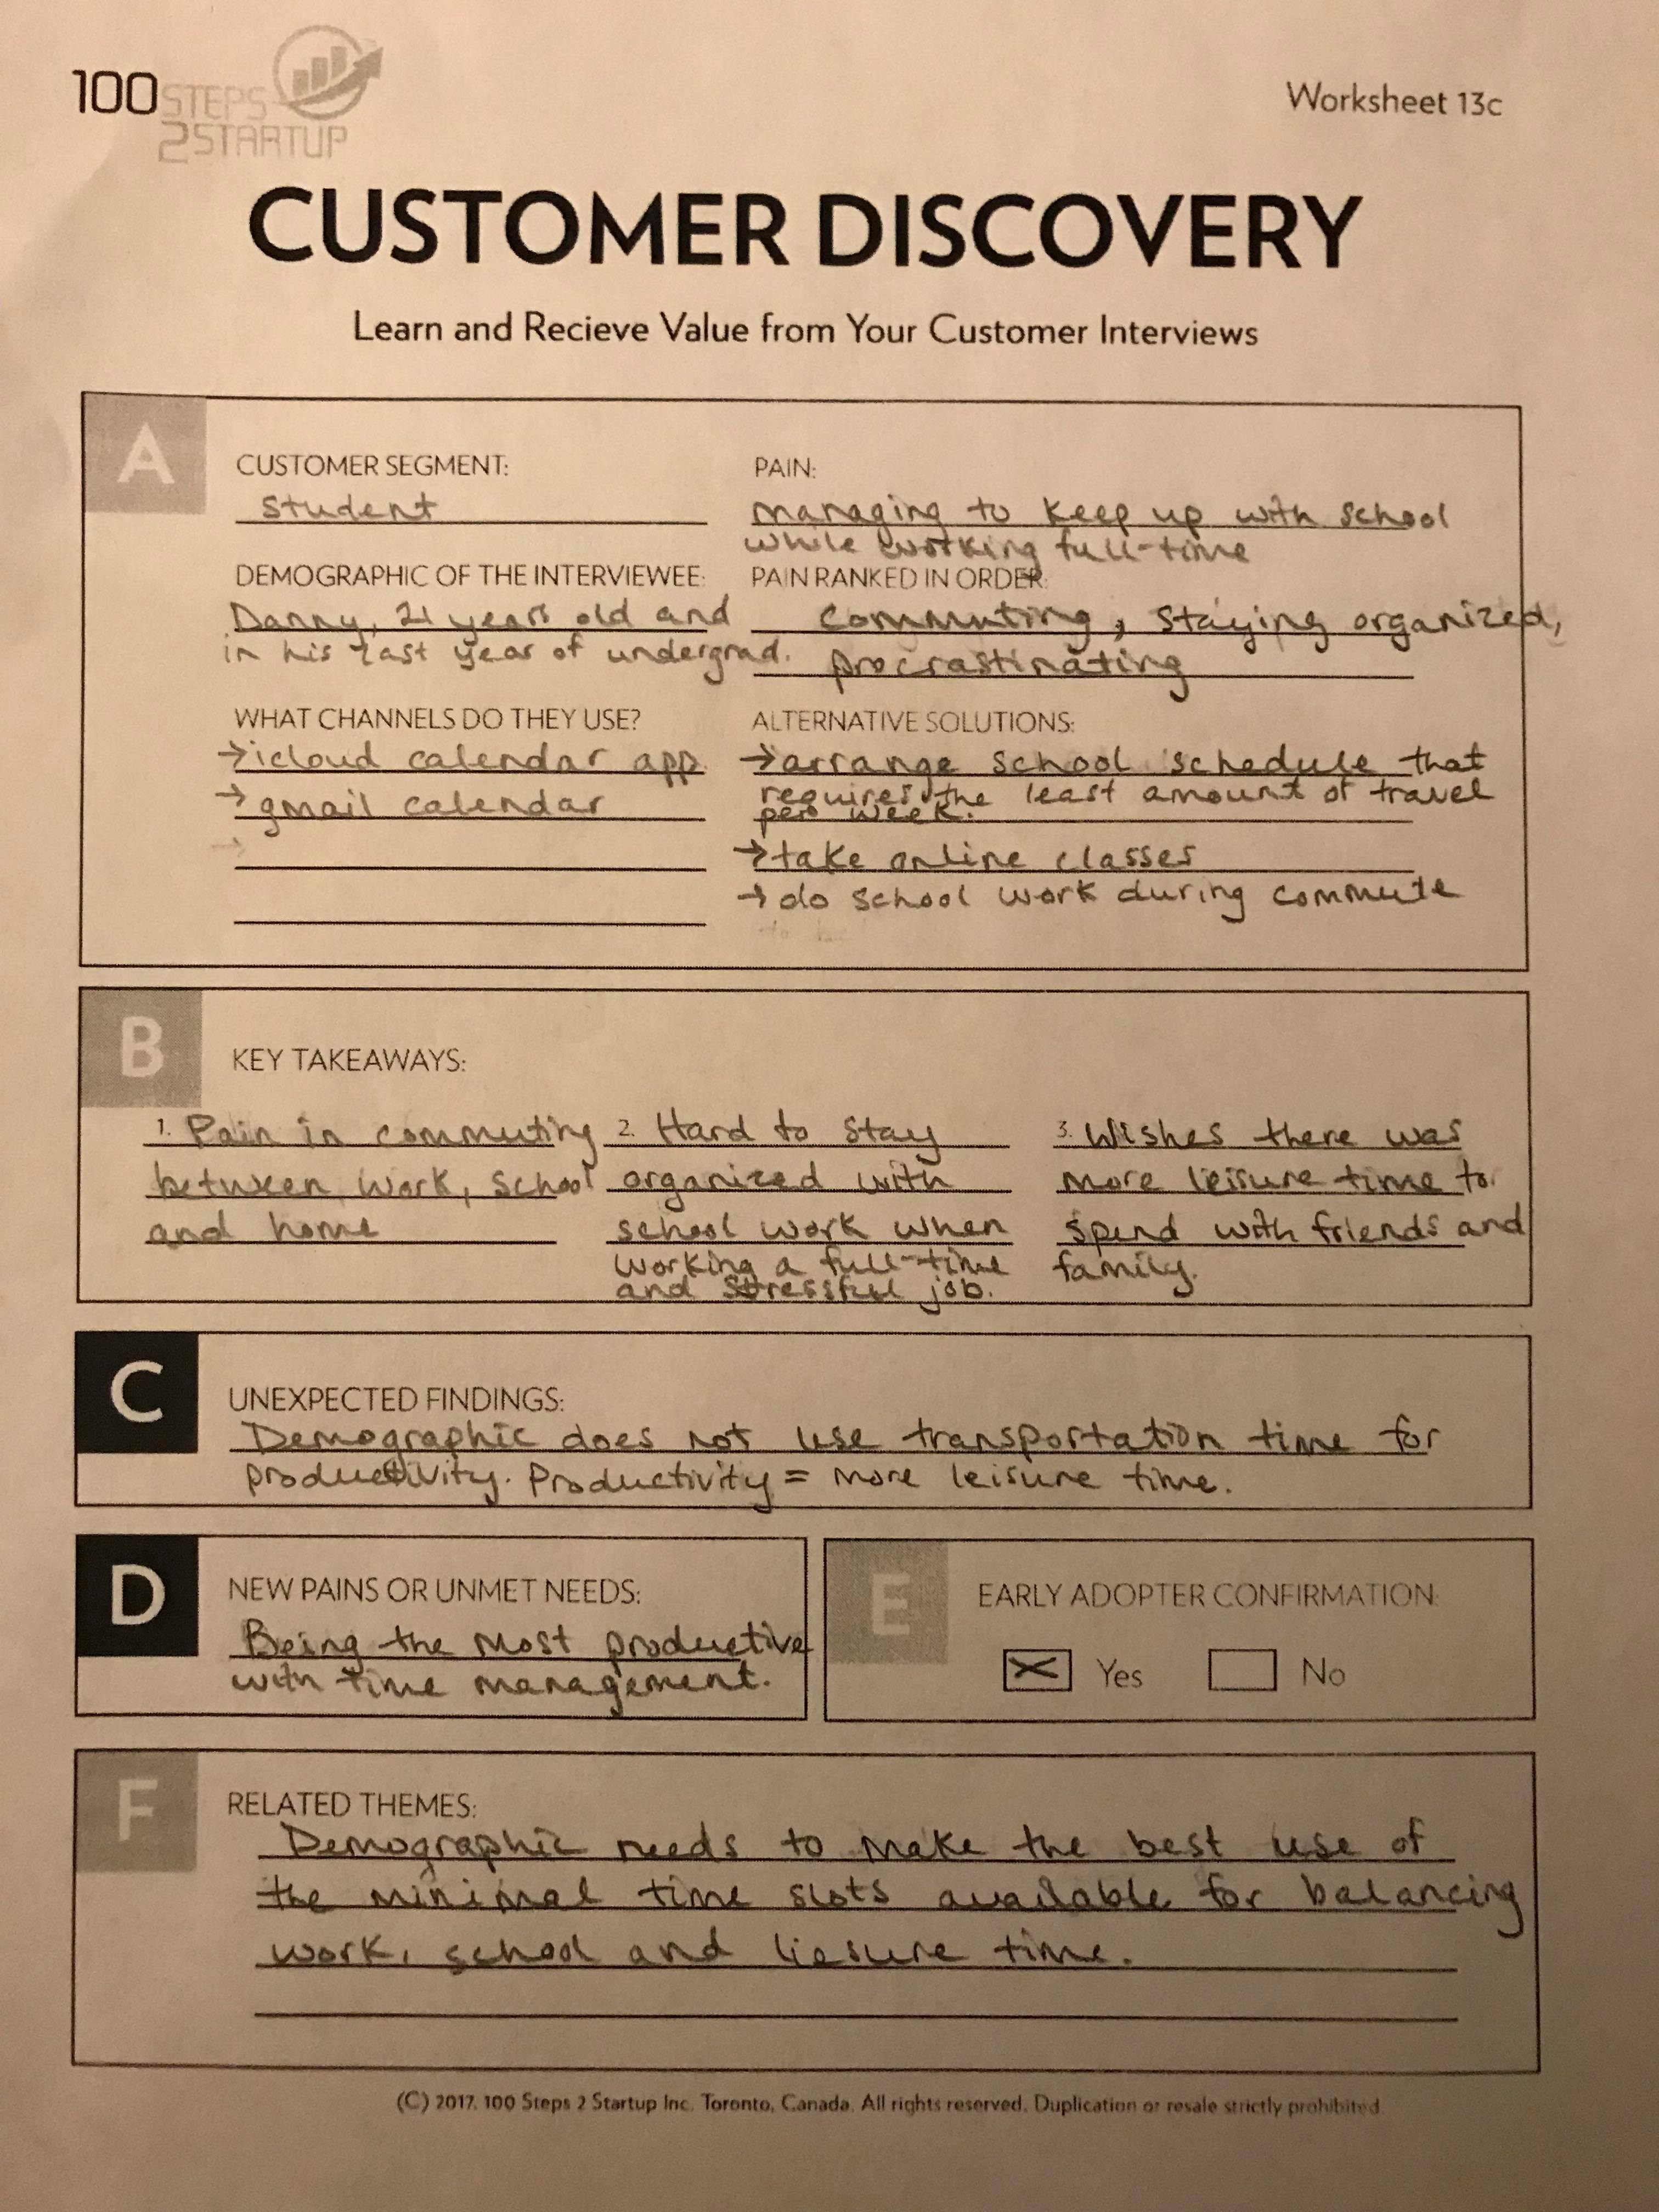 100 STEPS
2STARTUP
Worksheet 13c
CUSTOMER DISCOVERY
Learn and Recieve Value from Your Customer Interviews
A
CUSTOMER SEGMENT:
Student
DEMOGRAPHIC OF THE INTERVIEWEE:
Danny, 21 years old and
in his last year of undergrad.
WHAT CHANNELS DO THEY USE?
→icloud calendar app
→gmail calendar
→
PAIN:
managing to keep up with school
while working full-time
PAIN RANKED IN ORDER:
commuting, staying organized,
procrastinating
ALTERNATIVE SOLUTIONS:
→arrange school schedule that
requires the least amount of travel
per week.
→take online classes
→do school work during commute
B
KEY TAKEAWAYS:
1. Pain in commuting
between work, school
and home
2. Hard to stay
organized with
school work when
working a full-time
and stressful job.
3. Wishes there was
more leisure time to
spend with friends and
family.
C
UNEXPECTED FINDINGS:
Demographic does not use transportation time for
productivity. Productivity = more leisure time.
D
NEW PAINS OR UNMET NEEDS:
Being the most productive
with time management.
E
EARLY ADOPTER CONFIRMATION:
Yes No
F
RELATED THEMES:
Demographic needs to make the best use of
the minimal time slots available for balancing
work, school and liesure time.
(C) 2017. 100 Steps 2 Startup Inc. Toronto, Canada. All rights reserved. Duplication or resale strictly prohibited.